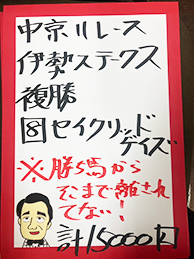 中京11レース
伊勢ステークス
複勝
⑧セイクリッド
デイズ
※勝ち馬から
そこまで離され
てない!
計15000円